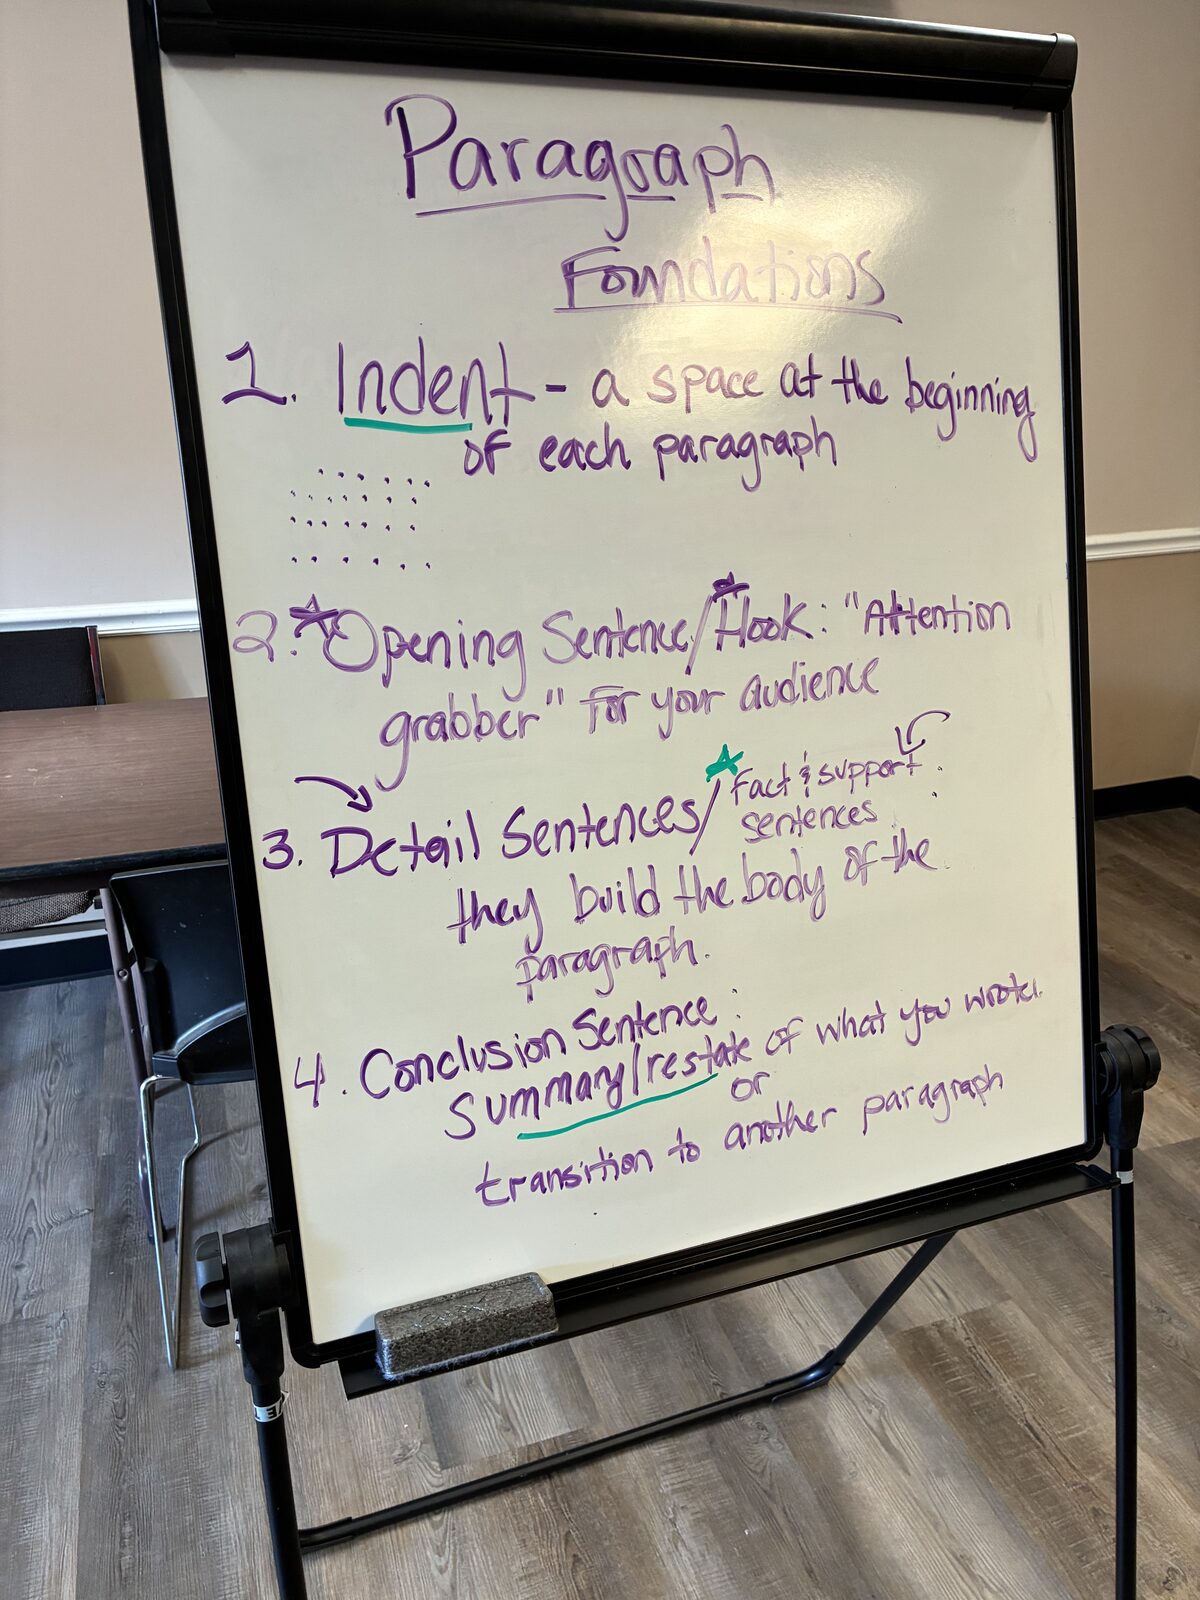 Paragraph
Foundations
1. Indent - a space at the beginning
of each paragraph
2. Opening Sentence/Hook: "Attention
grabber" for your audience
3. Detail Sentences/ Fact & support
sentences
they build the body of the
paragraph.
4. Conclusion Sentence:
Summary/restate of what you wrote.
or
transition to another paragraph